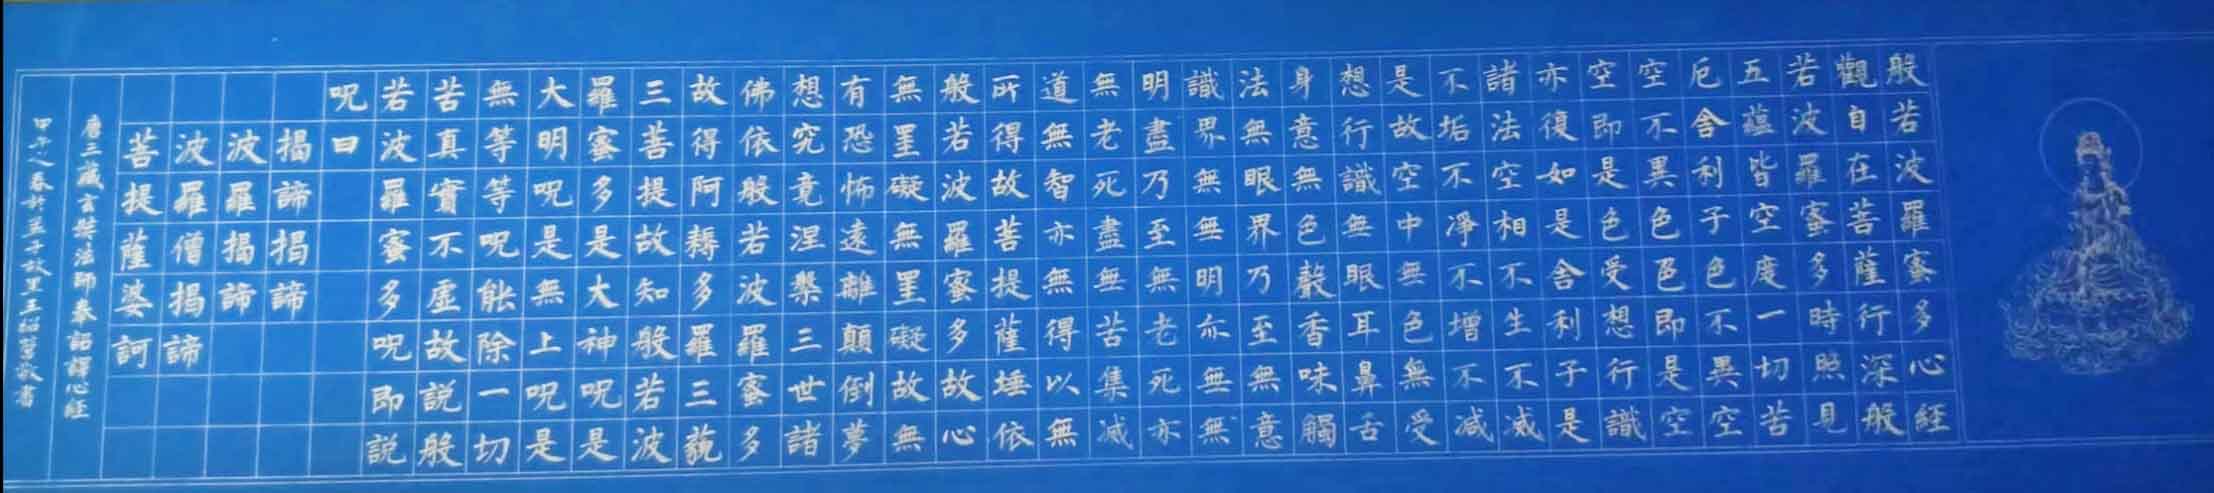 般若波羅蜜多心經
觀自在菩薩行深般
若波羅蜜多時照見
五蘊皆空度一切苦
厄舍利子色不異空
空不異色色即是空
空即是色受想行識
亦復如是舍利子是
諸法空相不生不滅
不垢不凈不增不减
是故空中無色無受
想行識無眼耳鼻舌
身意無色聲香味觸
法無眼界乃至無意
識界無無明亦無無
明盡乃至無老死亦
無老死盡無苦集滅
道無智亦無得以無
所得故菩提薩埵依
般若波羅蜜多故心
無罣礙無罣礙故無
有恐怖遠離顛倒夢
想究竟涅槃三世諸
佛依般若波羅蜜多
故得阿耨多羅三藐
三菩提故知般若波
羅蜜多是大神呪是
大明呪是無上呪是
無等等呪能除一切
苦真實不虛故説般
若波羅蜜多呪即説
呪曰
揭諦揭諦
波羅揭諦
波羅僧揭諦
菩提薩婆訶
唐三藏玄奘法師奉詔譯心經
甲午之春於孟子故里王紹敬書